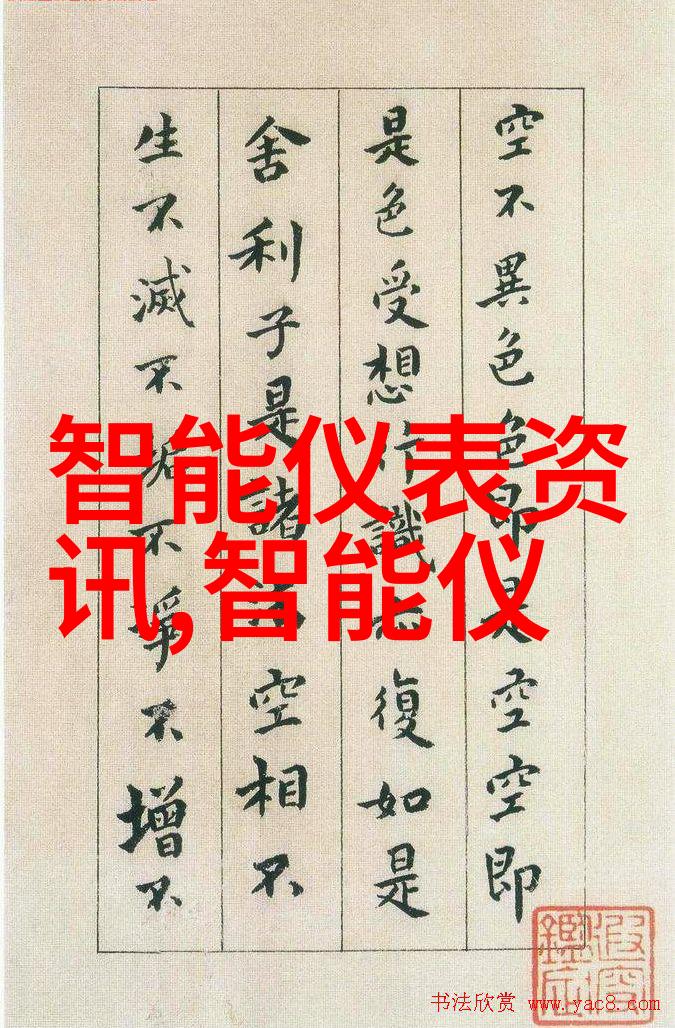 空不異色色即是空空即
是色受想行識亦復如是
舍利子是諸法空相不
生不滅不垢不淨不增不
智能仪表资
讯,智能仪
书法欣赏 www.yac8.com